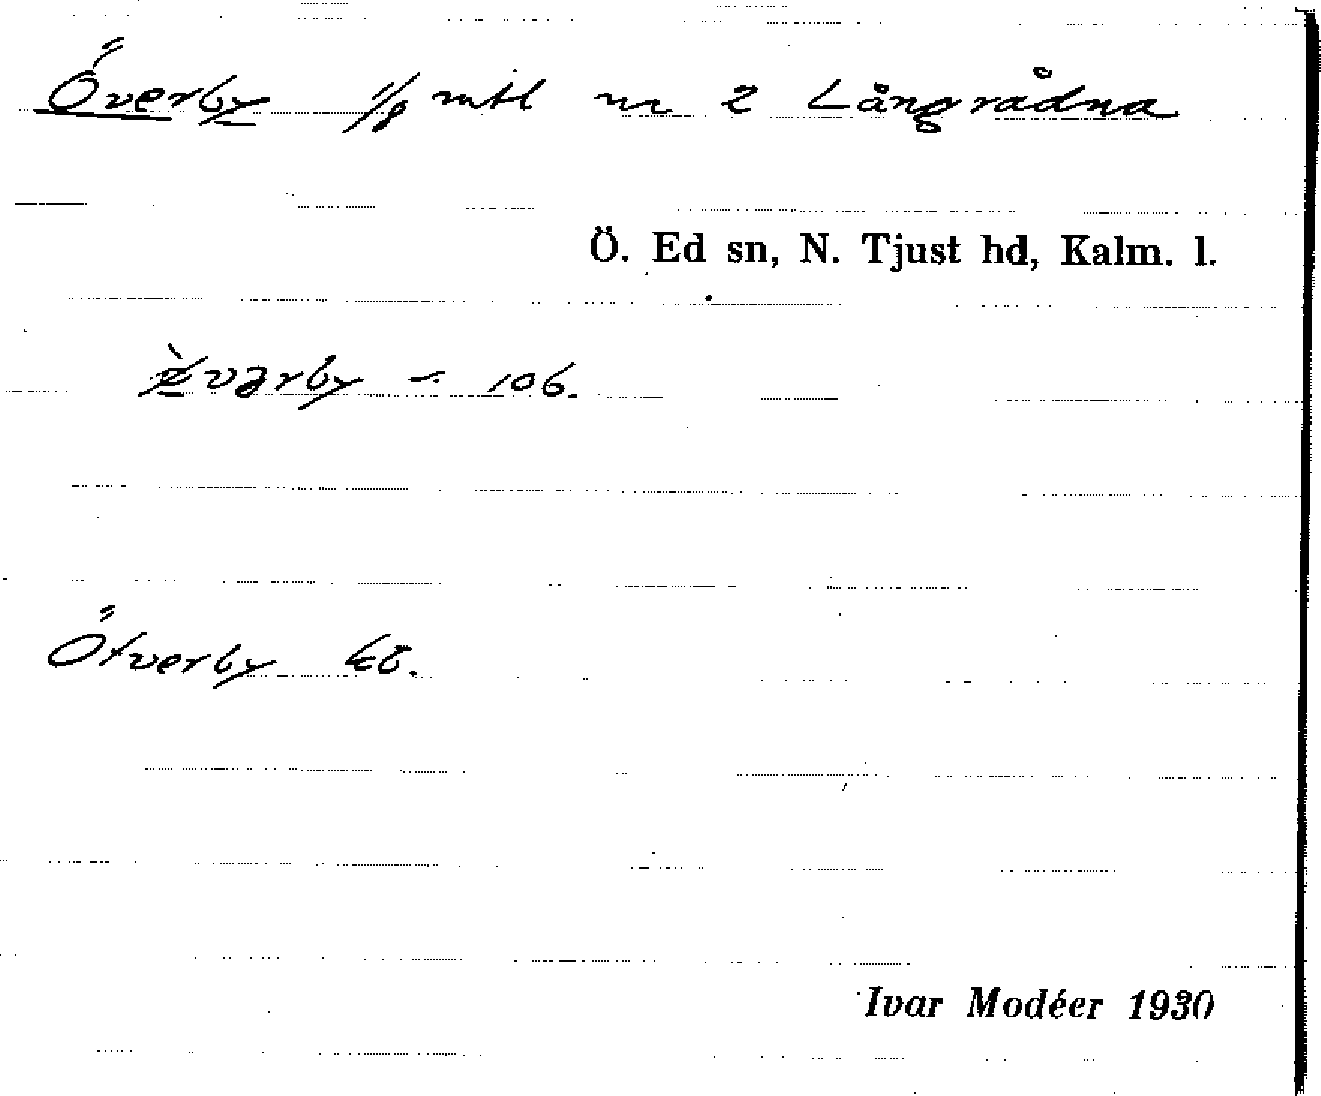 Överby 1/8 mtl nr 2 Långrådna
Ö. Ed sn, N. Tjust hd, Kalm. l.
106.
Ötverby kb.
Ivar Modéer 1930